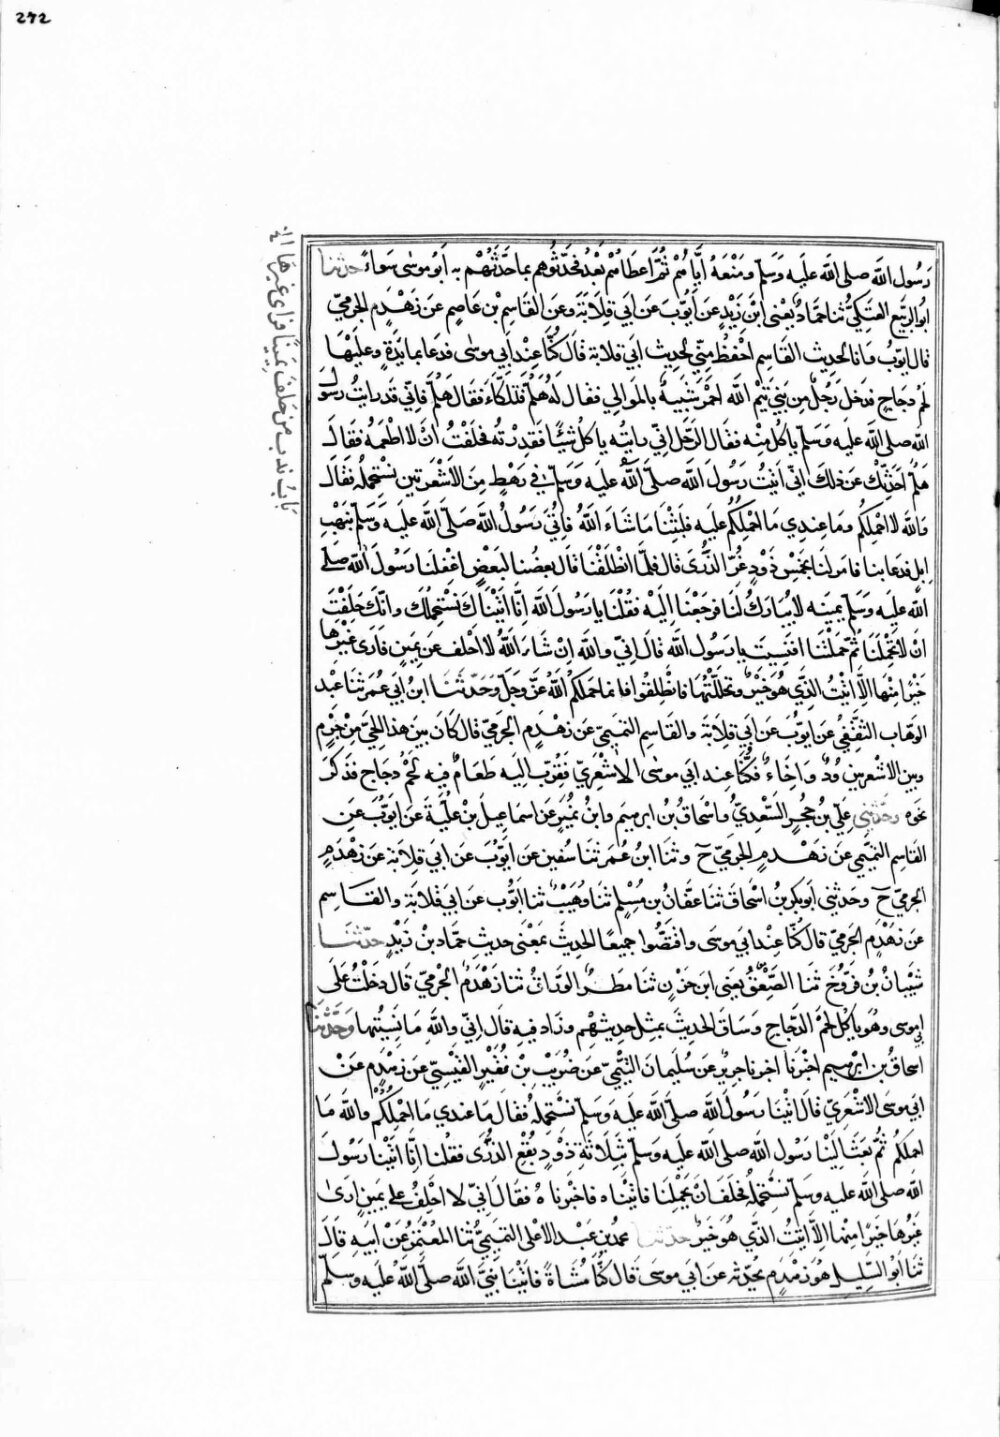 272
رسول الله صلى الله عليه وسلم ومنعه اياهم ثم اعطاهم بعد فحدثوهم بما حدثهم به ابو موسى سواء حدثنا
ابو الربيع العتكي ثنا حماد يعني ابن زيد عن ايوب عن ابي قلابة وعن القاسم بن عاصم عن زهدم الجرمي
قال ايوب وانا لحديث القاسم احفظ مني لحديث ابي قلابة قال كنا عند ابي موسى فدعا بمايدة وعليها
لحم دجاج فدخل رجل من بني تيم الله احمر شبيه بالموالي فقال له هلم فتلكاء فقال هلم فاني قد رايت رسول
الله صلى الله عليه وسلم ياكل منه فقال الرجل اني رايته ياكل شيئا فقذرته فحلفت ان لا اطعمه فقال
هلم احدثك عن ذلك اني اتيت رسول الله صلى الله عليه وسلم في رهط من الاشعريين نستحمله فقال
والله لا احملكم وما عندي ما احملكم عليه فلبثنا ما شاء الله فاتي رسول الله صلى الله عليه وسلم بنهب
ابل فدعا بنا فامر لنا بخمس ذود غر الذرى قال فلما انطلقنا قال بعضنا لبعض اغفلنا رسول الله صلى
الله عليه وسلم يمينه لا يبارك لنا فرجعنا اليه فقلنا يا رسول الله انا اتيناك نستحملك وانك حلفت
ان لا تحملنا ثم حملتنا افنسيت يا رسول الله قال اني والله ان شاء الله لا احلف عن يمين فارى غيرها
خيرا منها الا اتيت الذي هو خير وتحللتها فانطلقوا فانما حملكم الله عز وجل وحدثنا ابن ابي عمر ثنا عبد
الوهاب الثقفي عن ايوب عن ابي قلابة والقاسم التميمي عن زهدم الجرمي قال كان بين هذا الحي من جرم
وبين الاشعريين ود واخاء فكنا عند ابي موسى الاشعري فقرب اليه طعام فيه لحم دجاج فذكر
نحوه وحدثني علي بن حجر السعدي واسحاق بن ابرهيم وابن نمير عن اسماعيل بن علية عن ايوب عن
القاسم التميمي عن زهدم الجرمي ح وثنا ابن عمر ثنا سفين عن ايوب عن ابي قلابة عن زهدم
الجرمي ح وحدثني ابو بكر بن اسحاق ثنا عفان بن مسلم ثنا وهيب ثنا ايوب عن ابي قلابة والقاسم
عن زهدم الجرمي قال كنا عند ابي موسى واقتصوا جميعا الحديث بمعنى حديث حماد بن زيد حدثنا
شيبان بن فروخ ثنا الصعق يعني ابن حزن ثنا مطر الوراق ثنا زهدم الجرمي قال دخلت على
ابي موسى وهو ياكل لحم الدجاج وساق الحديث بمثل حديثهم وزاد فيه قال اني والله ما نسيتها وحدثنا
اسحاق بن ابرهيم اخبرنا اخبرنا جرير عن سليمان التيمي عن ضريب بن نفير القيسي عن زهدم عن
ابي موسى الاشعري قال اتينا رسول الله صلى الله عليه وسلم نستحمله فقال ما عندي ما احملكم والله ما
احملكم ثم بعث الينا رسول الله صلى الله عليه وسلم بثلاثة ذود بقع الذرى فقلنا انا اتينا رسول
الله صلى الله عليه وسلم نستحمله فحلف ان يحملنا فاتيناه فاخبرناه فقال اني لا احلف على يمين ارى
غيرها خيرا منها الا اتيت الذي هو خير حدثنا محمد بن عبد الاعلى التيمي ثنا المعتمر عن ابيه قال
ثنا ابو السليل هو زهدم يحدثه عن ابي موسى قال كنا مشاة فاتينا نبي الله صلى الله عليه وسلم
باب ندب من حلف يمينا فراى غيرها